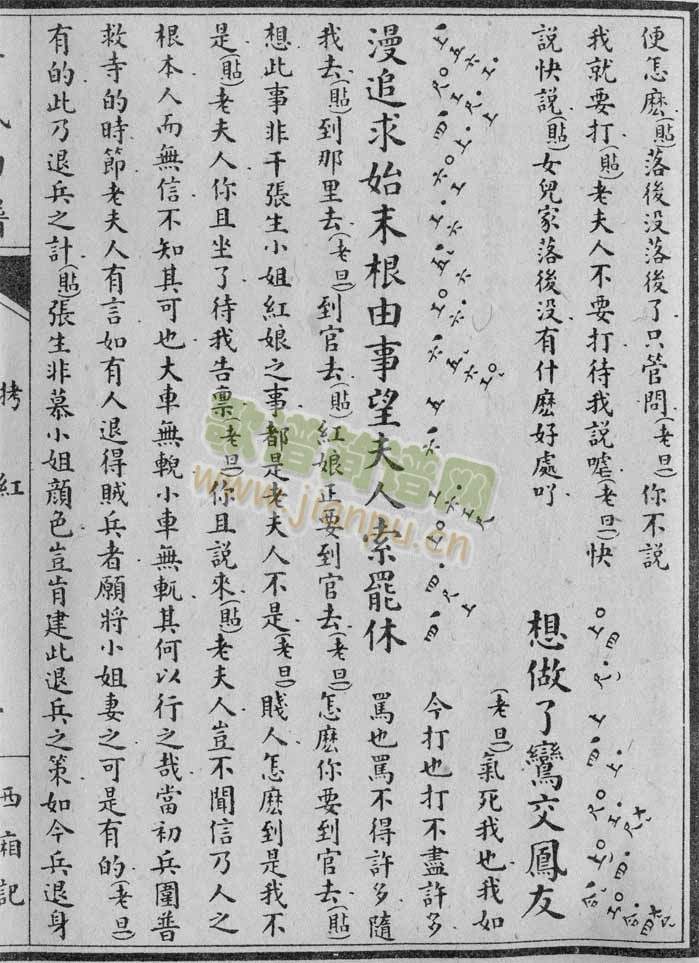 便怎麽(貼)落後没落後了只管問(老旦)你不說
我就要打(貼)老夫人不要打待我說嘘(老旦)快
說快說(貼)女兒家落後没有什麽好處吖
想做了鸞交鳳友
漫追求始末根由事望夫人索罷休
(老旦)氣死我也我如
今打也打不盡許多
罵也罵不得許多隨
我去(貼)到那里去(老旦)到官去(貼)紅娘正要到官去(老旦)怎麽你要到官去(貼)
想此事非干張生小姐紅娘之事都是老夫人不是(老旦)賤人怎麽到是我不
是(貼)老夫人你且坐了待我告禀(老旦)你且說來(貼)老夫人豈不聞信乃人之
根本人而無信不知其可也大車無輗小車無軏其何以行之哉當初兵圍普
救寺的時節老夫人有言如有人退得賊兵者願將小姐妻之可是有的(老旦)
有的此乃退兵之計(貼)張生非慕小姐顔色豈肯建此退兵之策如今兵退身
拷紅
西廂記
歌谱简谱网
www.jianpu.cn